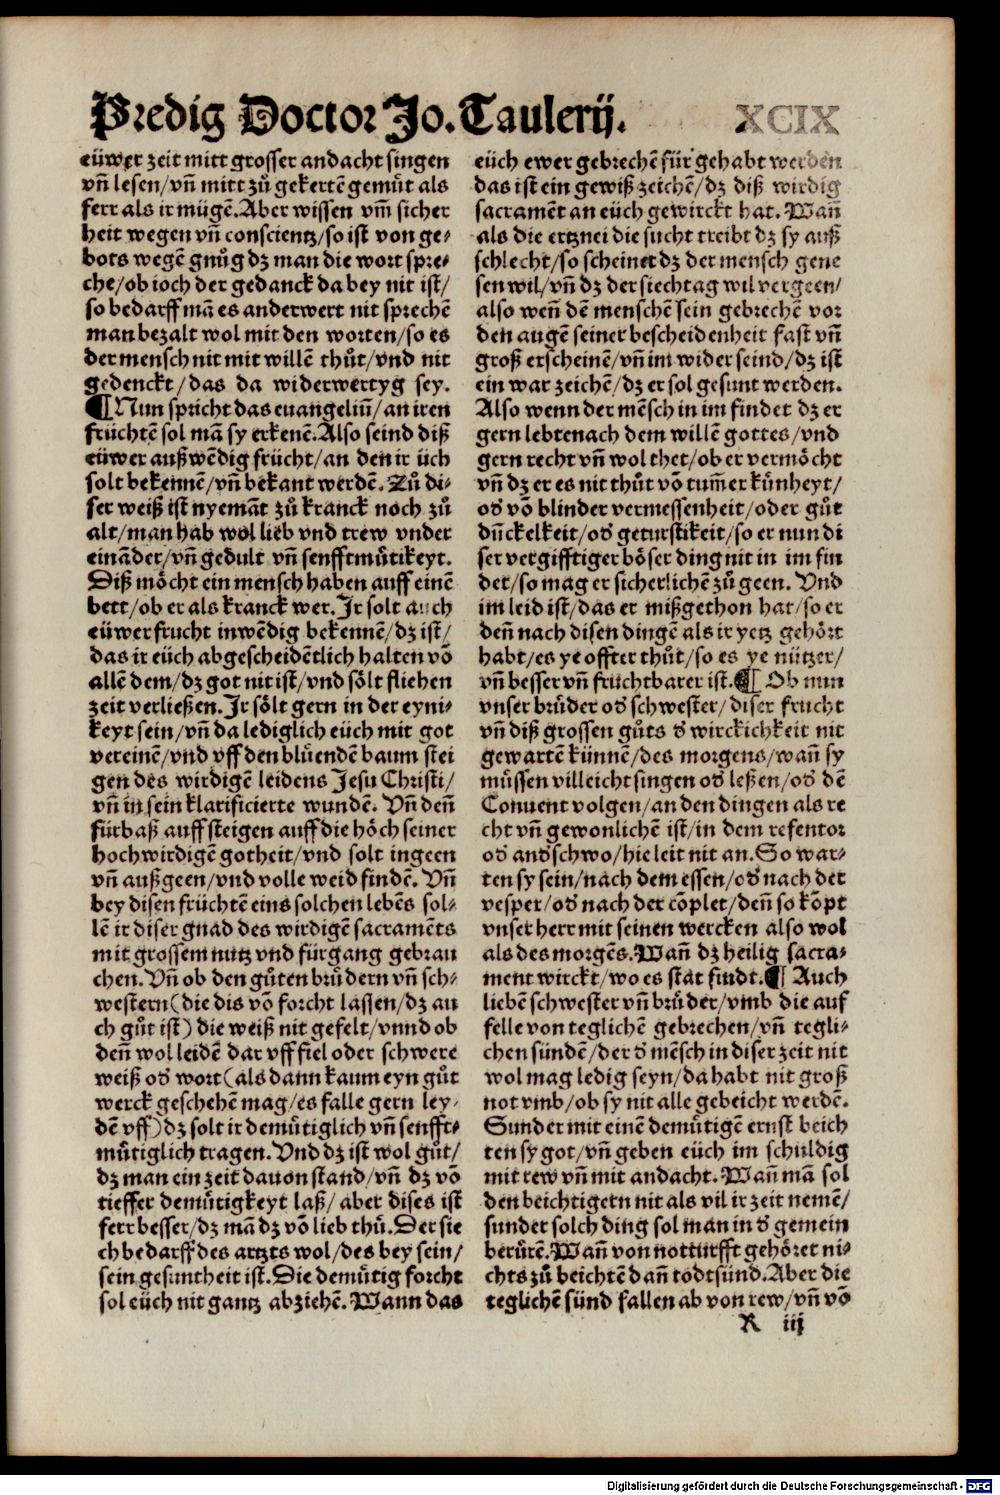 Predig Doctor Jo. Taulerij. XCIX
eüwer zeit mitt grosser andacht singen
vn̄ lesen/vn̄ mitt zů gekertē gemüt als
ferr als ir mügē. Aber wissen vm̄ sicher
heit wegen vn̄ conscientz/so ist von ge⸗
bots wegē gnůg dz man die wort spre⸗
che/ob ioch der gedanck da bey nit ist/
so bedarff mā es anderwert nit sprechē
man bezalt wol mit den worten/so es
der mensch nit mit willē thůt/vnd nit
gedenckt/das da widerwertyg sey.
¶ Nun spricht das euangeliū/an iren
früchtē sol mā sy erkenē. Also seind diß
eüwer außwēdig frücht/an den ir üch
solt bekennē/vn̄ bekant werdē. Zů di⸗
ser weiß ist nyemāt zů kranck noch zů
alt/man hab wol lieb vnd trew vnder
eināder/vn̄ gedult vn̄ senfftmütikeyt.
Diß möcht ein mensch haben auff einē
bett/ob er als kranck wer. Ir solt auch
eüwer frucht inwēdig bekennē/dz ist/
das ir eüch abgescheidētlich halten vō
allē dem/dz got nit ist/vnd sölt fliehen
zeit verließen. Ir sölt gern in der eyni⸗
keyt sein/vn̄ da lediglich eüch mit got
vereinē/vnd vff den blüendē baum stei
gen des wirdigē leidens Jesu Christi/
vn̄ in sein klarificierte wundē. Vn̄ den̄
fürbaß auff steigen auff die höch seiner
hochwirdigē gotheit/vnd solt ingeen
vn̄ außgeen/vnd volle weid findē. Vn̄
bey disen früchtē eins solchen lebēs sol⸗
lē ir diser gnad des wirdigē sacramēts
mit grossem nutz vnd fürgang gebrau
chen. Vn̄ ob den gůten brüdern vn̄ sch⸗
western (die dis vō forcht lassen/dz au
ch gůt ist) die weiß nit gefelt/vnnd ob
den̄ wol leidē dar vff fiel oder schwere
weiß oď wort (als dann kaum eyn gůt
werck geschehē mag/es falle gern ley⸗
dē vff) dz solt ir demütiglich vn̄ senfft⸗
mütiglich tragen. Vnd dz ist wol gůt/
dz man ein zeit dauon stand/vn̄ dz vō
tieffer demütigkeyt laß/aber dises ist
ferr besser/dz mā dz vō lieb thů. Der sie
ch bedarff des artzts wol/des bey sein/
sein gesuntheit ist. Die demütig forcht
sol eüch nit gantz abziehē. Wann das
eüch ewer gebrechē für gehabt werden
das ist ein gewiß zeichē/dz diß wirdig
sacramēt an eüch gewirckt hat. Wan̄
als die ertznei die sucht treibt dz sy auß
schlecht/so scheinet dz der mensch gene
sen wil/vn̄ dz der siechtag wil vergeen/
also wen̄ dē menschē sein gebrechē vor
den augē seiner bescheidenheit fast vn̄
groß erscheinē/vn̄ im wider seind/dz ist
ein war zeichē/dz er sol gesunt werden.
Also wenn der mēsch in im findet dz er
gern lebte nach dem willē gottes/vnd
gern recht vn̄ wol thet/ob er vermöcht
vn̄ dz er es nit thůt vō tum̄er künheyt/
oď vō blinder vermessenheit/oder gůt
dün̄ckelkeit/oď geturstikeit/so er nun di
ser vergifftiger böser ding nit in im fin
det/so mag er sicherlichē zů geen. Vnd
im leid ist/das er mißgethon hat/so er
den̄ nach disen dingē als ir yetz gehört
habt/es ye offter thůt/so es ye nützer/
vn̄ besser vn̄ fruchtbarer ist. ¶ Ob nun
vnser brůder oď schwester/diser frucht
vn̄ diß grossen gůts ď wirckichkeit nit
gewartē künnē/des morgens/wan̄ sy
müssen villeicht singen oď leßen/oď dē
Conuent volgen/an den dingen als re
cht vn̄ gewonlichē ist/in dem refentor
oď anďschwo/hie leit nit an. So war⸗
ten sy sein/nach dem essen/oď nach der
vesper/oď nach der cōplet/den̄ so kōpt
vnser herr mit seinen wercken also wol
als des morgēs. Wan̄ dz heilig sacra⸗
ment wirckt/wo es stat findt. ¶ Auch
liebē schwester vn̄ brůder/vmb die auf
felle von teglichē gebrechen/vn̄ tegli⸗
chen sündē/der ď mēsch in diser zeit nit
wol mag ledig seyn/da habt nit groß
not vmb/ob sy nit alle gebeicht werdē.
Sunder mit einē demütigē ernst beich
ten sy got/vn̄ geben eüch im schuldig
mit rew vn̄ mit andacht. Wan̄ mā sol
den beichtigern nit als vil ir zeit nemē/
sunder solch ding sol man in ď gemein
berürē. Wan̄ von notturfft gehöret ni⸗
chts zů beichtē dan̄ todtsünd. Aber die
teglichē sünd fallen ab von rew/vn̄ vō
R iij
Digitalisierung gefördert durch die Deutsche Forschungsgemeinschaft - DFG